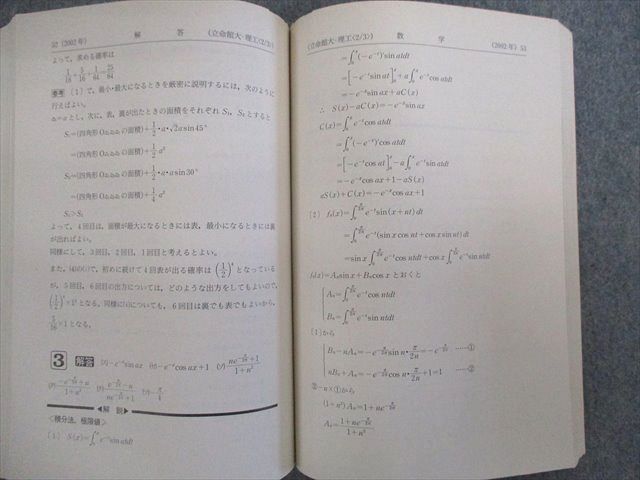 52 (2002年) 解 答 (立命館大-理工〈2/3〉)
よって,求める確率は
1/16+5/16+1/64=25/64
参考 (1)で,最小・最大になるときを厳密に説明するには,次のように
行えばよい。
=aとし,次に,表,裏が出たときの面積をそれぞれ S₁, S₂とすると
S₁=(四角形 の面積)+1/2・a・√2a sin45°
=(四角形 の面積)+1/2 a²
S₂=(四角形 の面積)+1/2・a・a sin30°
=(四角形 の面積)+1/4 a²
S₁>S₂
よって,4回目は,面積が最大になるときには表,最小になるときには裏
が出ればよい。
同様にして,3回目,2回目,1回目と考えるとよい。
また,で,初めに続けて4回表が出る確率は(1/2)⁴となっている
が,5回目,6回目の出方については,どのような出方をしてもよいので,
(1/2)⁴×1²となる。同様にについても,6回目は裏でも表でもよいから,
5/16×1となる。
3 解答
◀解 説▶
<積分法,極限値>
(1) S(x)=∫₀ˣe⁻ᵗsin atdt
(立命館大-理工〈2/3〉) 数 学 (2002年) 53
=∫₀ˣ(-e⁻ᵗ)'sin atdt
=[-e⁻ᵗsin at]₀ˣ+a∫₀ˣe⁻ᵗcos atdt
=-e⁻ˣsin ax+aC(x)
∴ S(x)-aC(x)=-e⁻ˣsin ax
C(x)=∫₀ˣe⁻ᵗcos atdt
=∫₀ˣ(-e⁻ᵗ)'cos atdt
=[-e⁻ᵗcos at]₀ˣ-a∫₀ˣe⁻ᵗsin atdt
=-e⁻ˣcos ax+1-aS(x)
aS(x)+C(x)=-e⁻ˣcos ax+1
(2) fₙ(x)=∫₀^(π/2n) e⁻ᵗsin(x+nt)dt
=∫₀^(π/2n) e⁻ᵗ(sin x cos nt+cos x sin nt)dt
=sin x∫₀^(π/2n) e⁻ᵗcos ntdt+cos x∫₀^(π/2n) e⁻ᵗsin ntdt
fₙ(x)=Aₙsin x+Bₙcos x とおくと
Aₙ=∫₀^(π/2n) e⁻ᵗcos ntdt
Bₙ=∫₀^(π/2n) e⁻ᵗsin ntdt
(1)から
Bₙ-nAₙ=-e^(-π/2n) sin n・π/2n=-e^(-π/2n) ……①
nBₙ+Aₙ=-e^(-π/2n) cos n・π/2n+1=1 ……②
②-n×①から
(1+n²)Aₙ=1+ne^(-π/2n)
Aₙ=(1+ne^(-π/2n))/(1+n²)